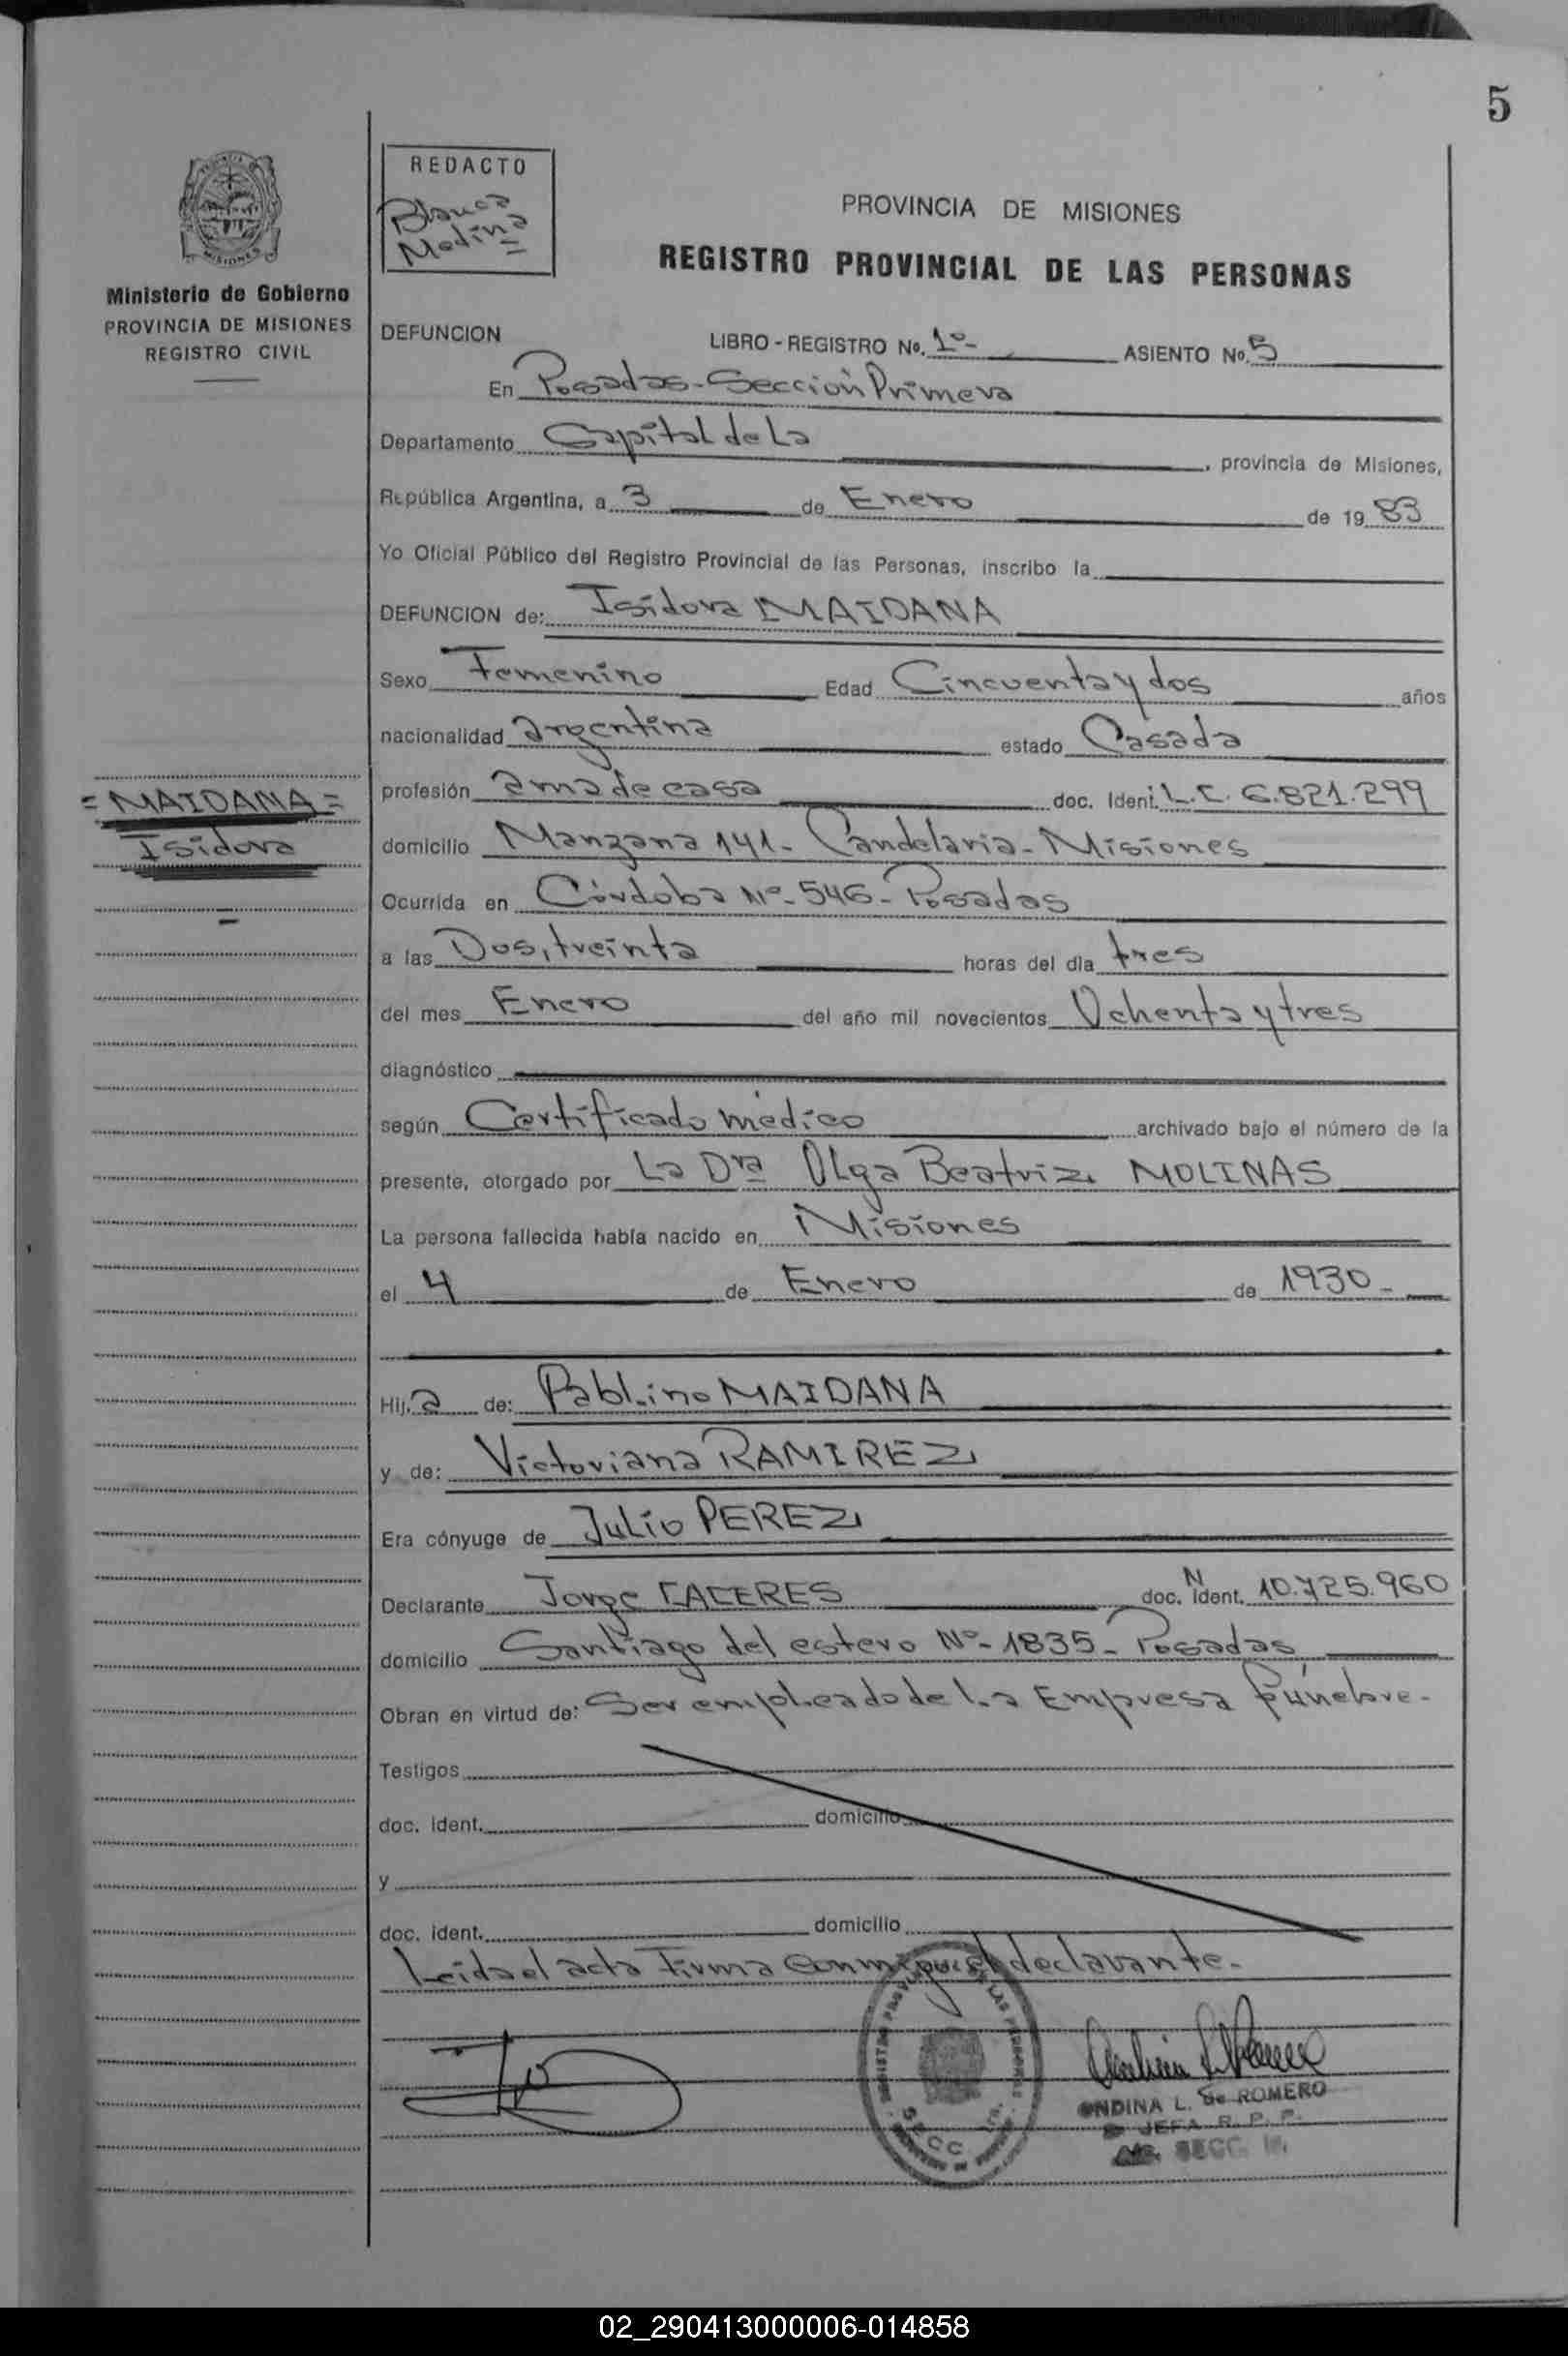 5
REDACTO
Blanca
Medina
PROVINCIA DE MISIONES
REGISTRO PROVINCIAL DE LAS PERSONAS
MISIONES
Ministerio de Gobierno
PROVINCIA DE MISIONES
REGISTRO CIVIL
DEFUNCION LIBRO - REGISTRO No. 1º- ASIENTO No. 5
En Posadas-Sección Primera
Departamento Capital de La , provincia de Misiones,
República Argentina, a 3 de Enero de 19 83
Yo Oficial Público del Registro Provincial de las Personas, inscribo la
DEFUNCION de: Isidora MAIDANA
Sexo Femenino Edad Cincuenta y dos años
nacionalidad argentina estado Casada
= MAIDANA =
Isidora
profesión ama de casa doc. Ident. L.C. 6.821.299
domicilio Manzana 141- Candelaria- Misiones
Ocurrida en Córdoba Nº- 546- Posadas
a las Dos, treinta horas del día tres
del mes Enero del año mil novecientos Ochenta y tres
diagnóstico
según Certificado médico archivado bajo el número de la
presente, otorgado por La Dra Olga Beatriz MOLINAS
La persona fallecida había nacido en Misiones
el 4 de Enero de 1930-
Hij a de: Pablino MAIDANA
y de: Victoriana RAMIREZ
Era cónyuge de Julio PEREZ
Declarante Jorge CACERES doc. N Ident. 10.725.960
domicilio Santiago del estero Nº- 1835- Posadas
Obran en virtud de: Ser empleado de la Empresa fúnebre-
Testigos
doc. ident. domicilio
y
doc. ident. domicilio
Leida el acta Firma conmigo el declarante-
SECC. 1ra.
ONDINA L. de ROMERO
JEFA R. P. P.
SECC. 1a.
02_290413000006-014858